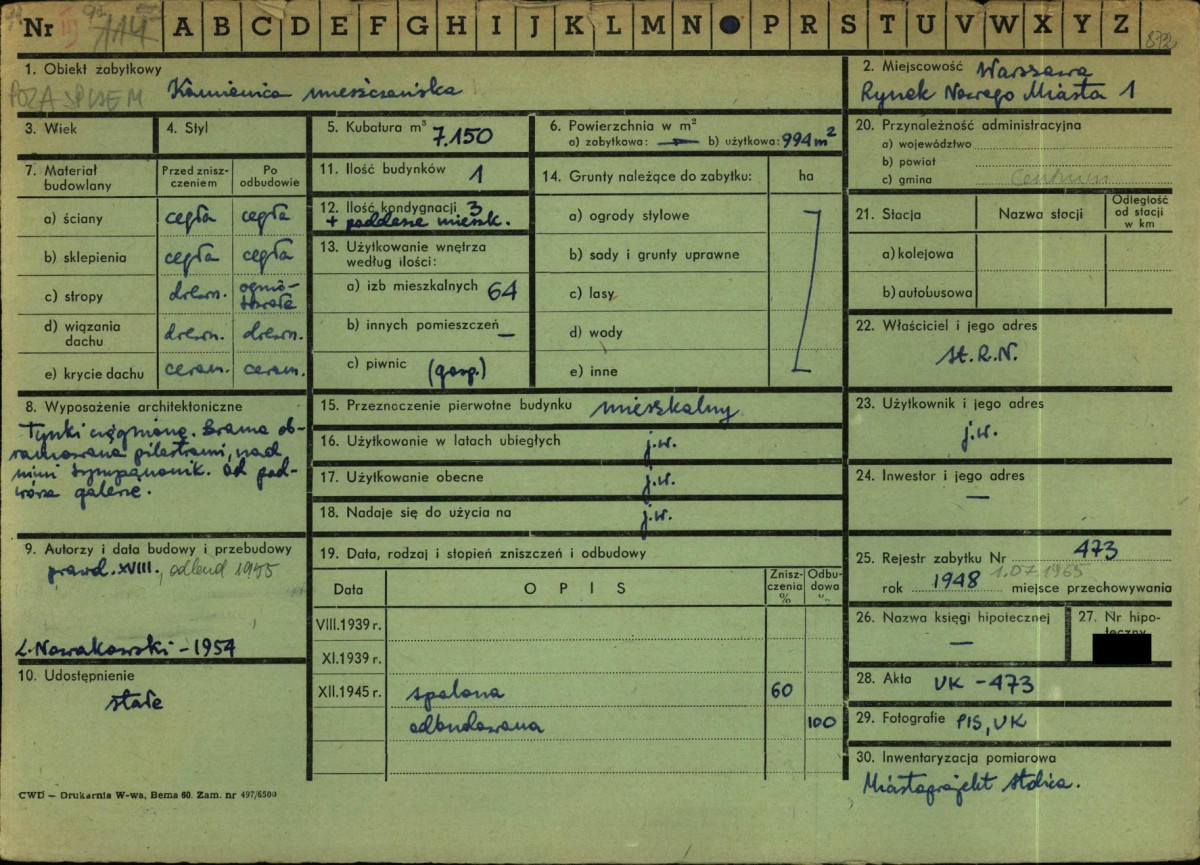 Nr 114 A B C D E F G H I J K L M N P R S T U V W X Y Z 872
1. Obiekt zabytkowy
POZA SPISEM Kamienica mieszczańska
2. Miejscowość Warszawa
Rynek Nowego Miasta 1
3. Wiek
4. Styl
5. Kubatura m³ 7.150
6. Powierzchnia w m²
a) zabytkowa: — b) użytkowa: 994 m²
7. Materiał budowlany
Przed zniszczeniem
Po odbudowie
a) ściany cegła cegła
b) sklepienia cegła cegła
c) stropy drewn. ognio-trwałe
d) wiązania dachu drewn. drewn.
e) krycie dachu ceram. ceram.
8. Wyposażenie architektoniczne
Tynki ciągnione. Brama ob-
ramowana pilastrami, nad
nimi tympanonik. Od pod-
wórza galerie.
9. Autorzy i data budowy i przebudowy
prawd. XVIII., odbud 1955
Z. Nowakowski - 1954
10. Udostępnienie
stałe
11. Ilość budynków 1
12. Ilość kondygnacji 3
+ poddasze mieszk.
13. Użytkowanie wnętrza
według ilości:
a) izb mieszkalnych 64
b) innych pomieszczeń —
c) piwnic (gosp.)
14. Grunty należące do zabytku: ha
a) ogrody stylowe
b) sady i grunty uprawne
c) lasy
d) wody
e) inne
15. Przeznoczenie pierwotne budynku mieszkalny
16. Użytkowanie w latach ubiegłych j.w.
17. Użytkowanie obecne j.w.
18. Nadaje się do użycia na j.w.
19. Data, rodzaj i stopień zniszczeń i odbudowy
Data OPIS Zniszczenia % Odbudowa %
VIII.1939 r.
XI.1939 r.
XII.1945 r. spalona 60
odbudowana 100
20. Przynależność administracyjna
a) województwo
b) powiat
c) gmina Centrum
21. Stacja Nazwa stacji Odległość od stacji w km
a) kolejowa
b) autobusowa
22. Właściciel i jego adres
St. R.N.
23. Użytkownik i jego adres
j.w.
24. Inwestor i jego adres
—
25. Rejestr zabytku Nr 473
1.07.1965
rok 1948 miejsce przechowywania
26. Nazwa księgi hipotecznej
—
27. Nr hipo-
teczny
28. Akta UK - 473
29. Fotografie PIS, UK
30. Inwentaryzacja pomiarowa
Miastoprojekt Stolica.
CWD — Drukarnia W-wa, Bema 60. Zam. nr 497/6500